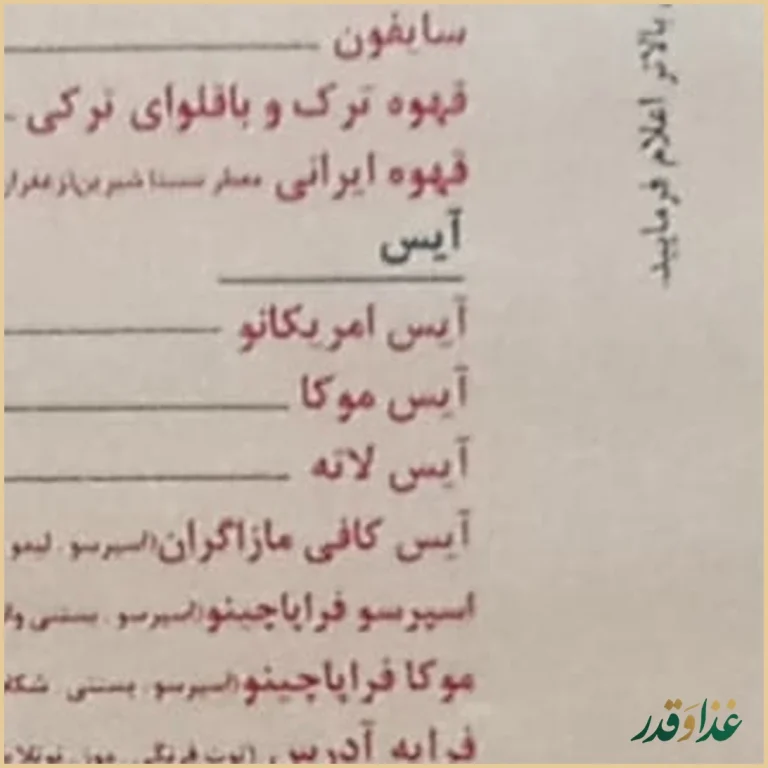 سایفون
قهوه ترک و باقلوای ترکی
قهوه ایرانی معطر شده با
آیس
آیس امریکانو
آیس موکا
آیس لاته
آیس کافی مازاگران (اسپرسو. لیمو
اسپرسو فراپاچینو (اسپرسو. بستنی
موکا فراپاچینو (اسپرسو. بستنی
فراپه آدرس (توت فرنگی. موز.
بالاتر اعلام فرمایید.
غذا و قدر